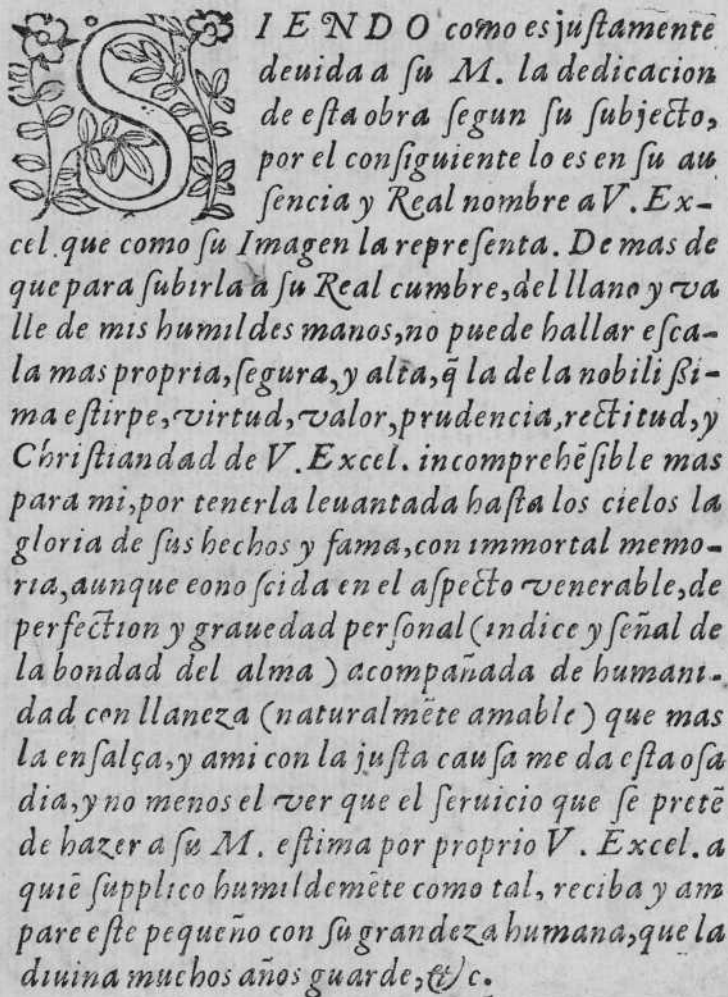 SIENDO como es justamentē
deuida a su M. la dedicacion
de esta obra segun su subjecto,
por el consiguiente lo es en su au
sencia y Real nombre a V. Ex-
cel. que como su Imagen la representa. De mas de
que para subirla a su Real cumbre, del llano y va
lle de mis humildes manos, no puede hallar esca-
la mas propria, segura, y alta, q̃ la de la nobilissi-
ma estirpe, virtud, valor, prudencia, rectitud, y
Christiandad de V. Excel. incomprehēsible mas
para mi, por tenerla leuantada hasta los cielos la
gloria de sus hechos y fama, con immortal memo-
ria, aunque eonoscida en el aspecto venerable, de
perfection y grauedad personal (indice y señal de
la bondad del alma) acompañada de humani-
dad con llaneza (naturalmēte amable) que mas
la ensalça, y ami con la justa causa me da esta osa
dia, y no menos el ver que el seruicio que se pretē
de hazer a su M. estima por proprio V. Excel. a
quiē supplico humildemēte como tal, reciba y am
pare este pequeño con su grandeza humana, que la
diuina muchos años guarde, &c.